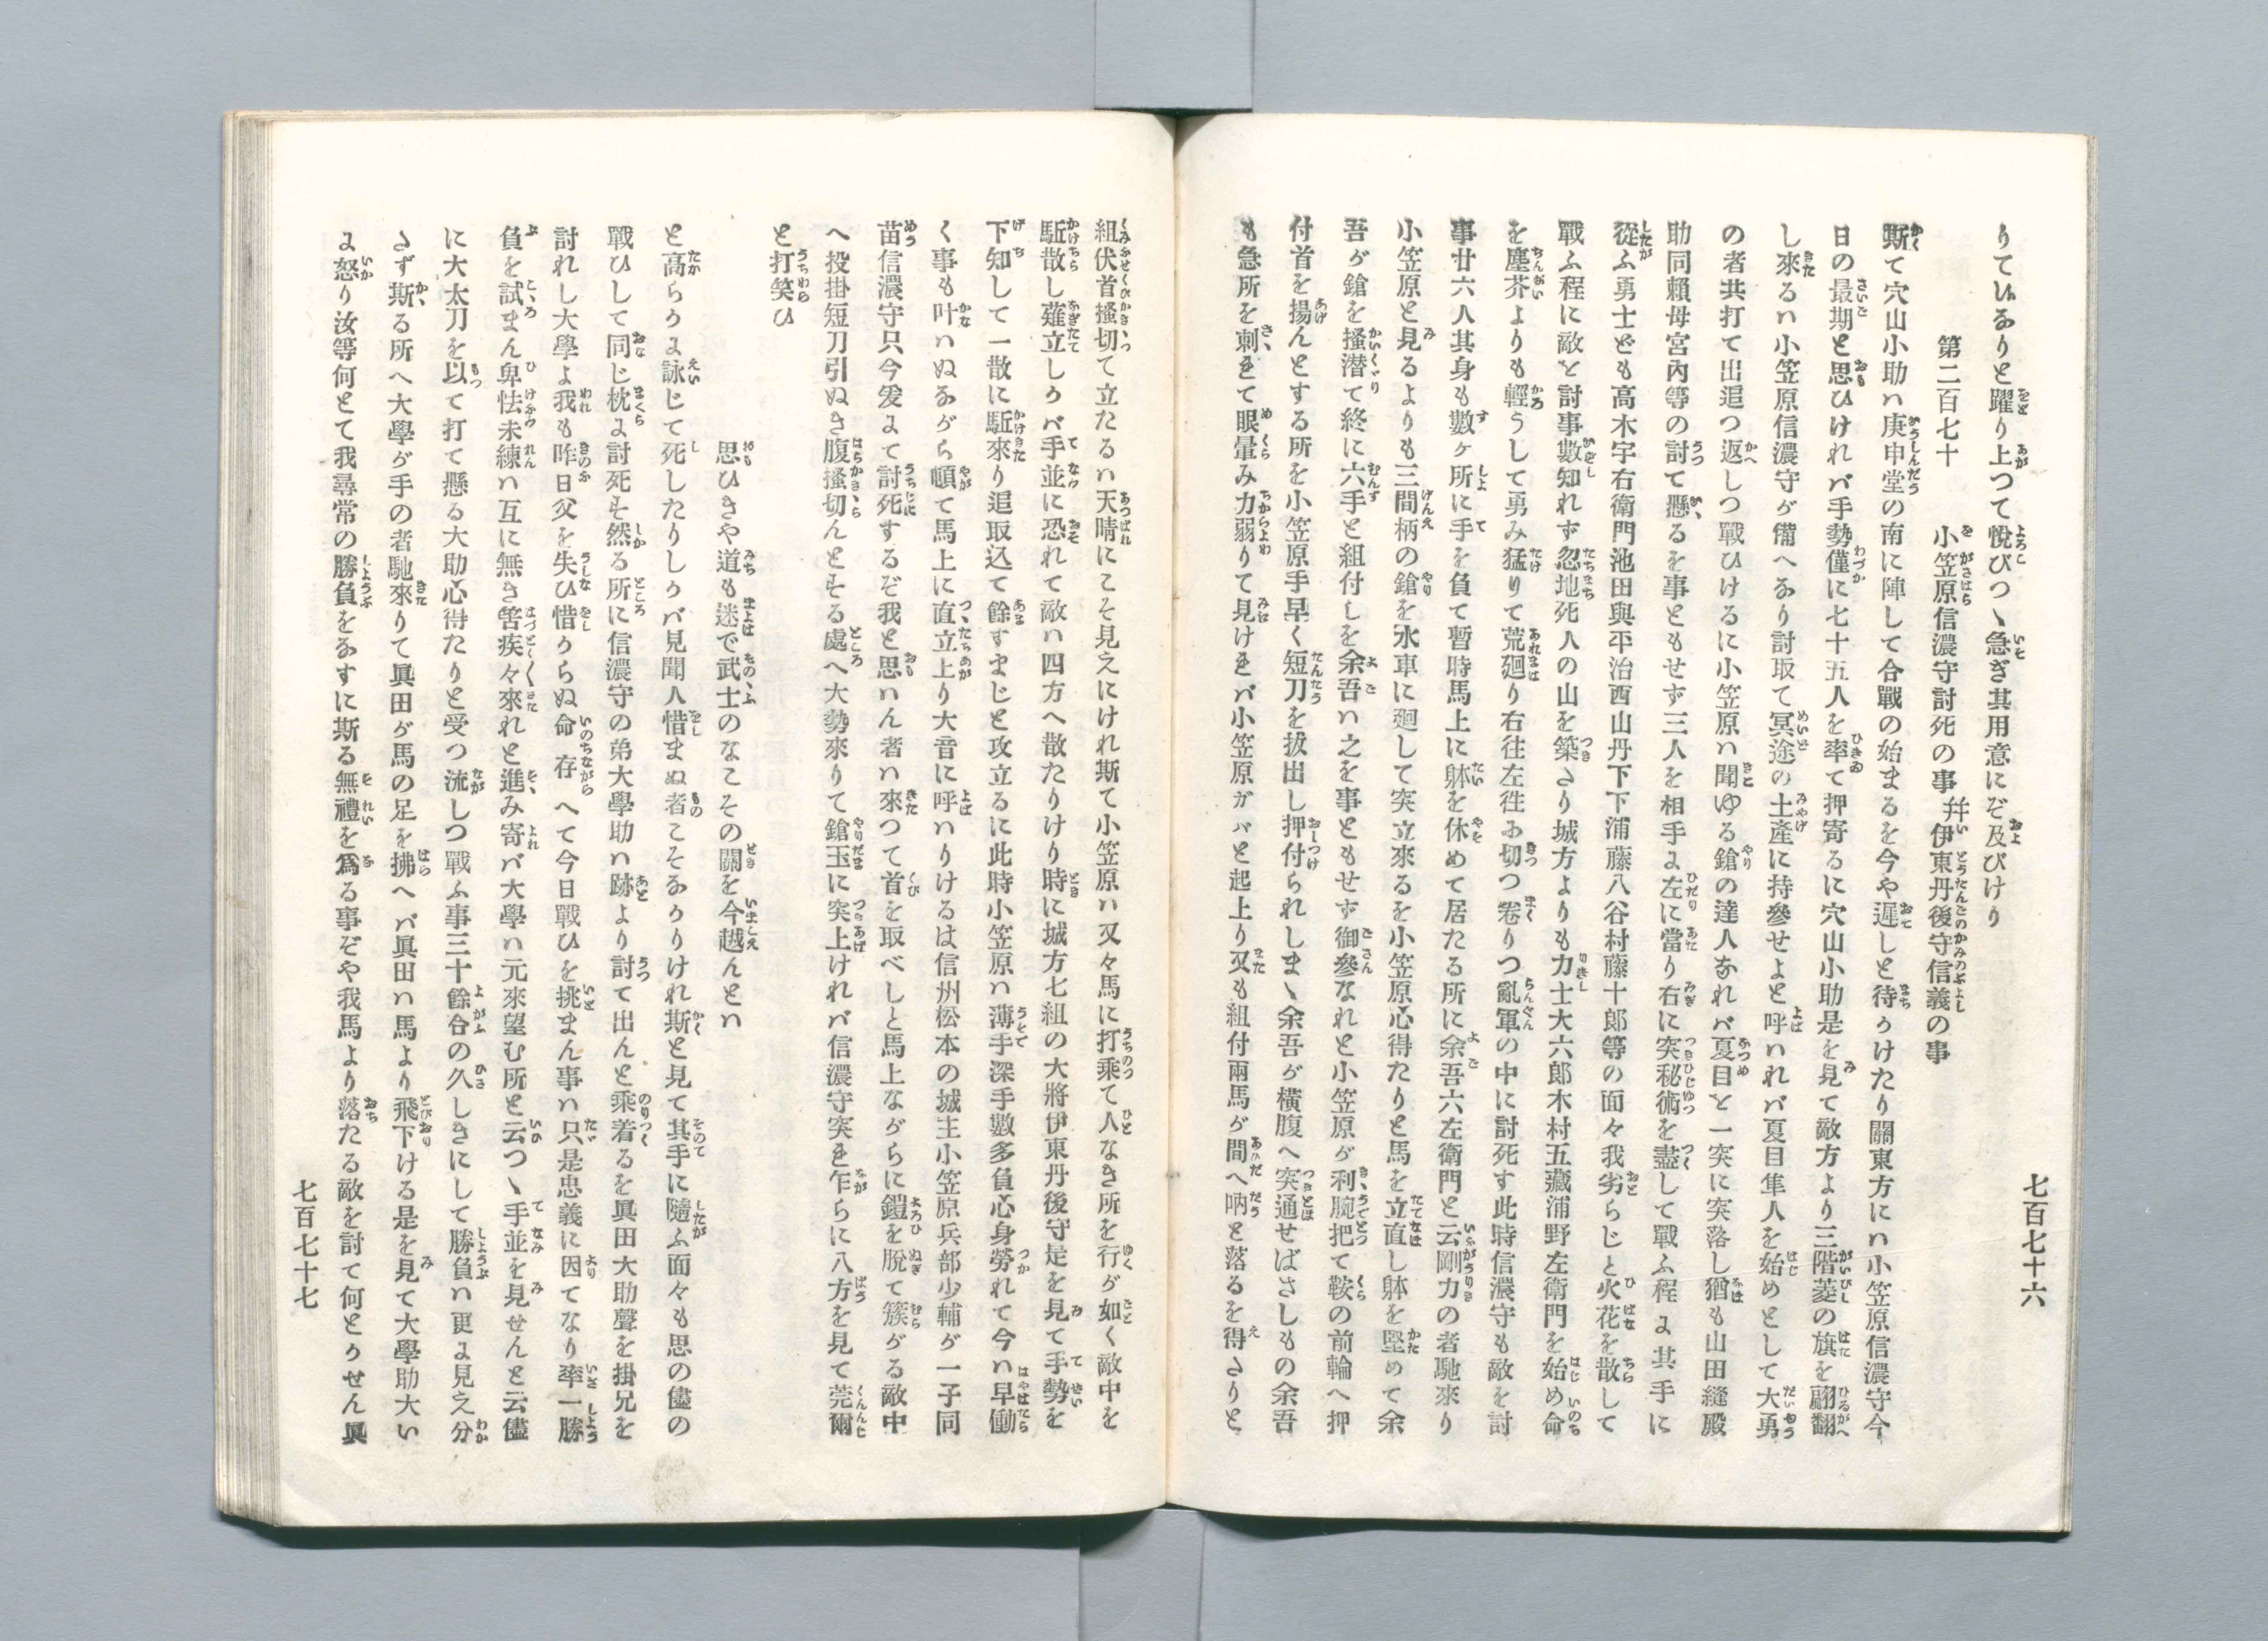 七百七十六
りていゐなりと躍り上つて悅びつゝ急ぎ其用意にぞ及びけり
第二百七十　小笠原信濃守討死の事 幷 伊東丹後守信義の事
斯て穴山小助ハ庚申堂の南に陣して合戰の始まるを今や遲しと待うけたり關東方にハ小笠原信濃守今
日の最期と思ひけれバ手勢僅に七十五人を率て押寄るに穴山小助是を見て敵方より三階菱の旗を翩翻
し來るハ小笠原信濃守が備へなり討取て冥途の土產に持參せよと呼ハれバ夏目隼人を始めとして大勇
の者共打て出追つ返しつ戰ひけるに小笠原ハ聞ゆる鎗の達人なれバ夏目を一突に突落し猶も山田縫殿
助同賴母宮內等の討て懸るを事ともせず三人を相手に左に當り右に突秘術を盡して戰ふ程に其手に
從ふ勇士ども高木宇右衛門池田與平治西山丹下下浦藤八谷村藤十郎等の面々我劣らじと火花を散して
戰ふ程に敵を討事數知れず忽地死人の山を築さり城方よりも力士大六郎木村五藏浦野左衛門を始め命
を塵芥よりも輕うして勇み猛りて荒廻り右往左徃に切つ卷りつ亂軍の中に討死す此時信濃守も敵を討
事廿六人其身も數ヶ所に手を負て暫時馬上に躰を休めて居たる所に余吾六左衛門と云剛力の者馳來り
小笠原と見るよりも三間柄の鎗を水車に廻して突立來るを小笠原心得たりと馬を立直し躰を堅めて余
吾が鎗を搔潜て終に六手と組付しを余吾ハ之を事ともせず御參なれと小笠原が利腕把て鞍の前輪へ押
付首を揚んとする所を小笠原手早く短刀を拔出し押付られしまゝ余吾が橫腹へ突通せばさしもの余吾
も急所を刺れて眼暈み力弱りて見けれバ小笠原ガバと起上り又も組付兩馬が間へ吶と落るを得さりと
組伏首搔切て立たるハ天晴にこそ見えにけれ斯て小笠原ハ又々馬に打乘て人なき所を行が如く敵中を
駈散し薙立しかバ手並に恐れて敵ハ四方へ散たりけり時に城方七組の大將伊東丹後守是を見て手勢を
下知して一散に駈來り追取込て餘すまじと攻立るに此時小笠原ハ薄手深手數多負心身勞れて今ハ早働
く事も叶ハぬながら頓て馬上に直立上り大音に呼ハりけるは信州松本の城主小笠原兵部少輔が一子同
苗信濃守只今爰にて討死するぞ我と思ハん者ハ來つて首を取べしと馬上ながらに鎧を脫て簇がる敵中
へ投掛短刀引ぬき腹搔切んとする處へ大勢來りて鎗玉に突上けれバ信濃守突れ乍らに八方を見て莞爾
と打笑ひ
思ひきや道も迷で武士のなこその關を今越んとハ
と高らかに詠じて死したりしかバ見聞人惜まぬ者こそなかりけれ斯と見て其手に隨ふ面々も思の儘の
戰ひして同じ枕に討死す然る所に信濃守の弟大學助ハ跡より討て出んと乘着るを眞田大助聲を掛兄を
討れし大學よ我も昨日父を失ひ惜からぬ命存へて今日戰ひを挑まん事ハ只是忠義に因てなり率一勝
負を試まん卑怯未練ハ互に無き筈疾々來れと進み寄バ大學ハ元來望む所と云つゝ手並を見せんと云儘
に大太刀を以て打て懸る大助心得たりと受つ流しつ戰ふ事三十餘合の久しきにして勝負ハ更に見え分
さず斯る所へ大學が手の者馳來りて眞田が馬の足を拂へバ眞田ハ馬より飛下ける是を見て大學助大い
に怒り汝等何とて我尋常の勝負をなすに斯る無禮を爲る事ぞや我馬より落たる敵を討て何とかせん眞
七百七十七